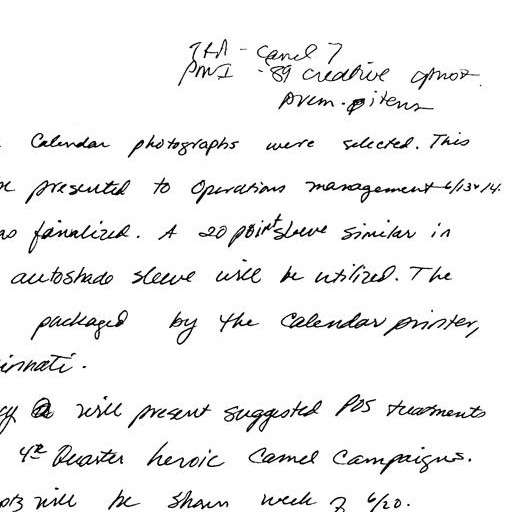 - Camel 7
PMI - '89 creative
prem. items
Calendar photographs were selected. This
presented to Operations management 6/13 + 14.
finalized. A 20 point sleeve similar in
autoshade sleeve will be utilized. The
packaged by the Calendar printer,
will present suggested POS treatments
4th Quarter heroic Camel Campaigns.
will be shown week of 6/20.